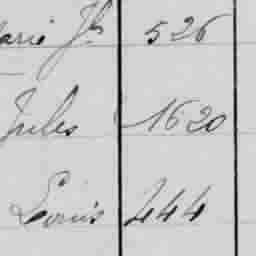 Marie Jh 526
Jules 1620
Louis 444